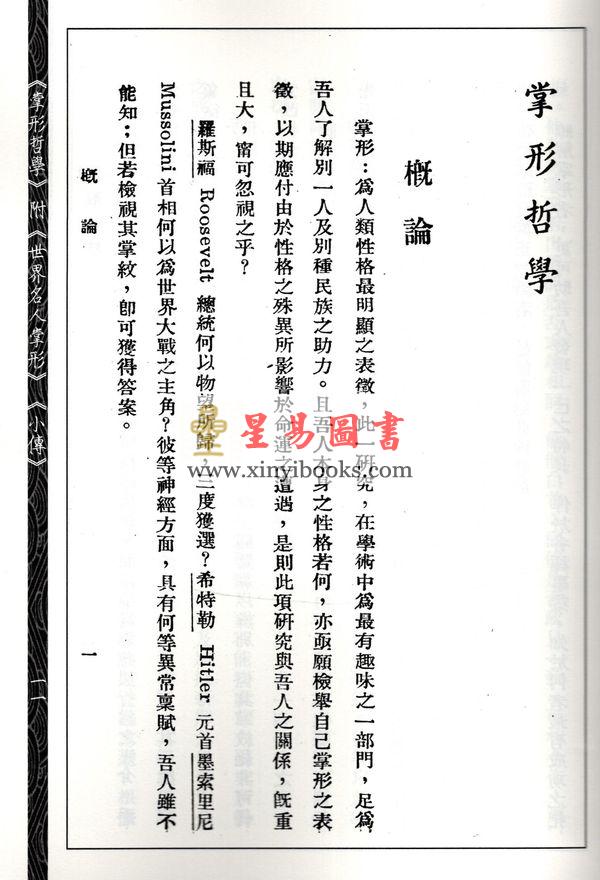 掌形哲學
概論
掌形：爲人類性格最明顯之表徵，此一研究，在學術中爲最有趣味之一部門，足爲
吾人了解別一人及別種民族之助力。且吾人本身之性格若何，亦亟願檢舉自己掌形之表
徵，以期應付由於性格之殊異所影響於命運之遭遇，是則此項研究與吾人之關係，旣重
且大，甯可忽視之乎？
羅斯福 Roosevelt 總統何以物望所歸，三度獲選？希特勒 Hitler 元首墨索里尼
Mussolini 首相何以爲世界大戰之主角？彼等神經方面，具有何等異常稟賦，吾人雖不
能知；但若檢視其掌紋，卽可獲得答案。
概論
一
《掌形哲學》附《世界名人掌形》《小傳》
一一
星易圖書
www.xinyibooks.com